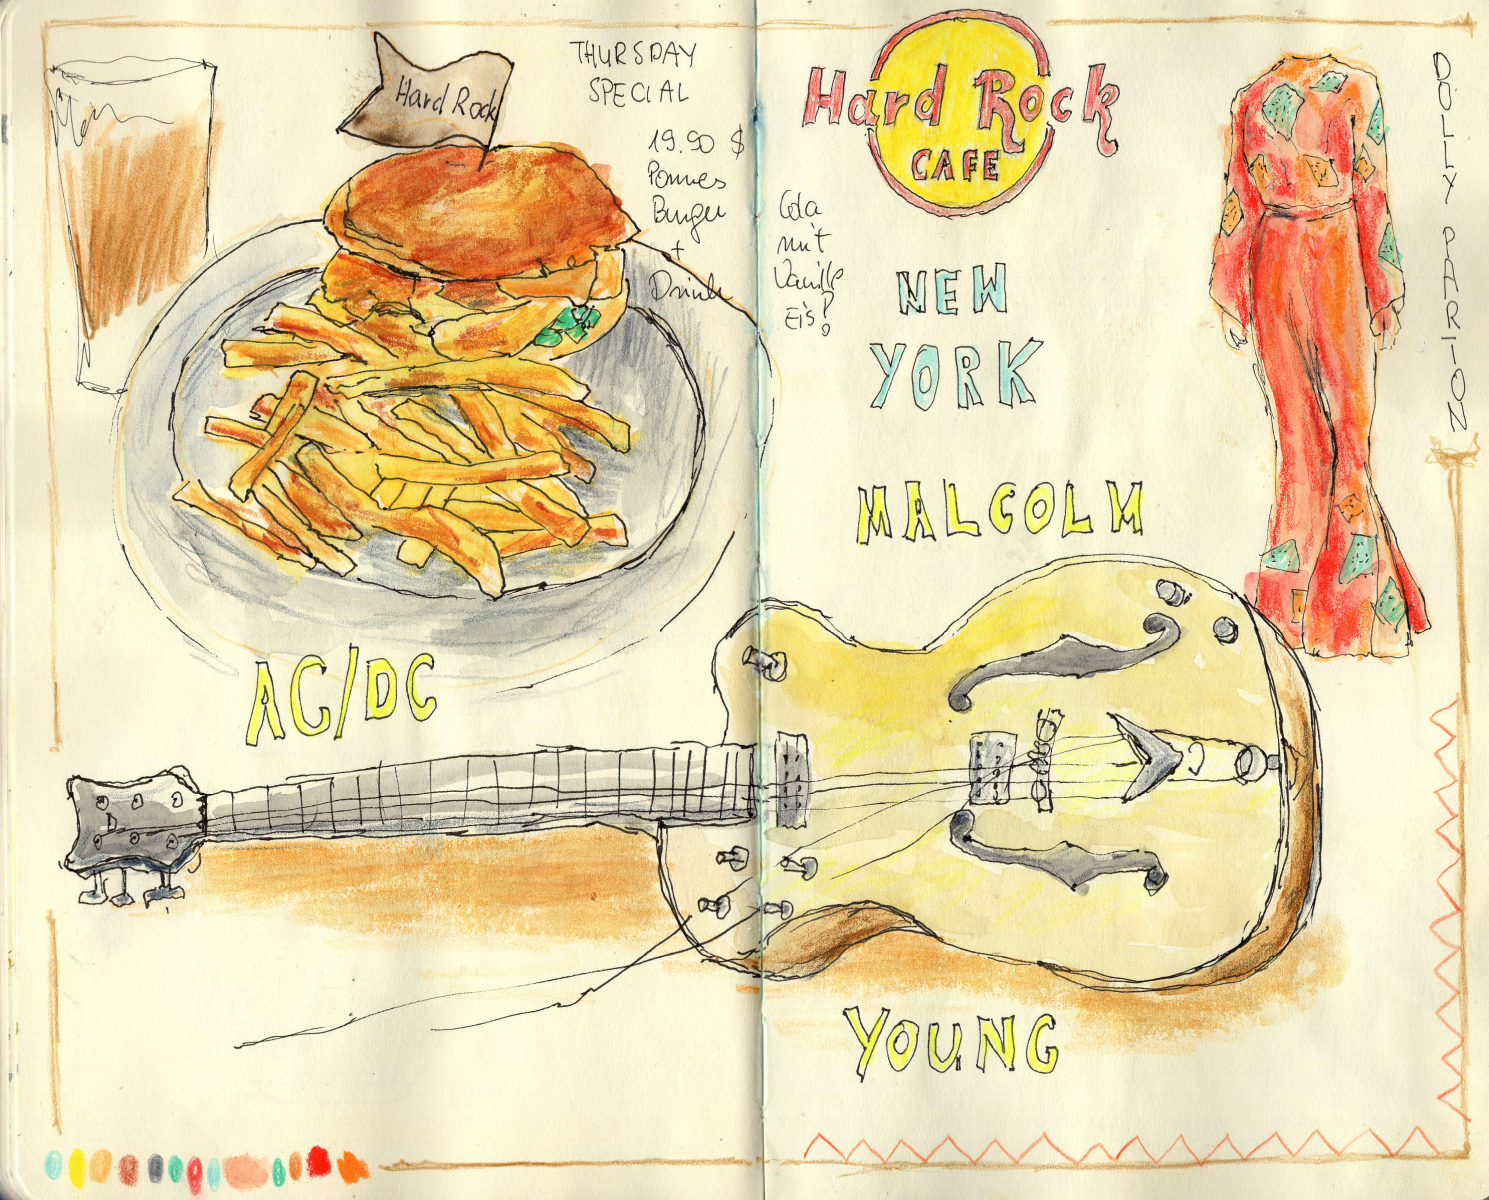 Hard Rock
THURSDAY
SPECIAL
19.90 $
Pommes
Burger
+
Drink
Cola
mit
Vanille
Eis?
Hard Rock
CAFE
NEW
YORK
DOLLY PARTON
AC/DC
MALCOLM
YOUNG